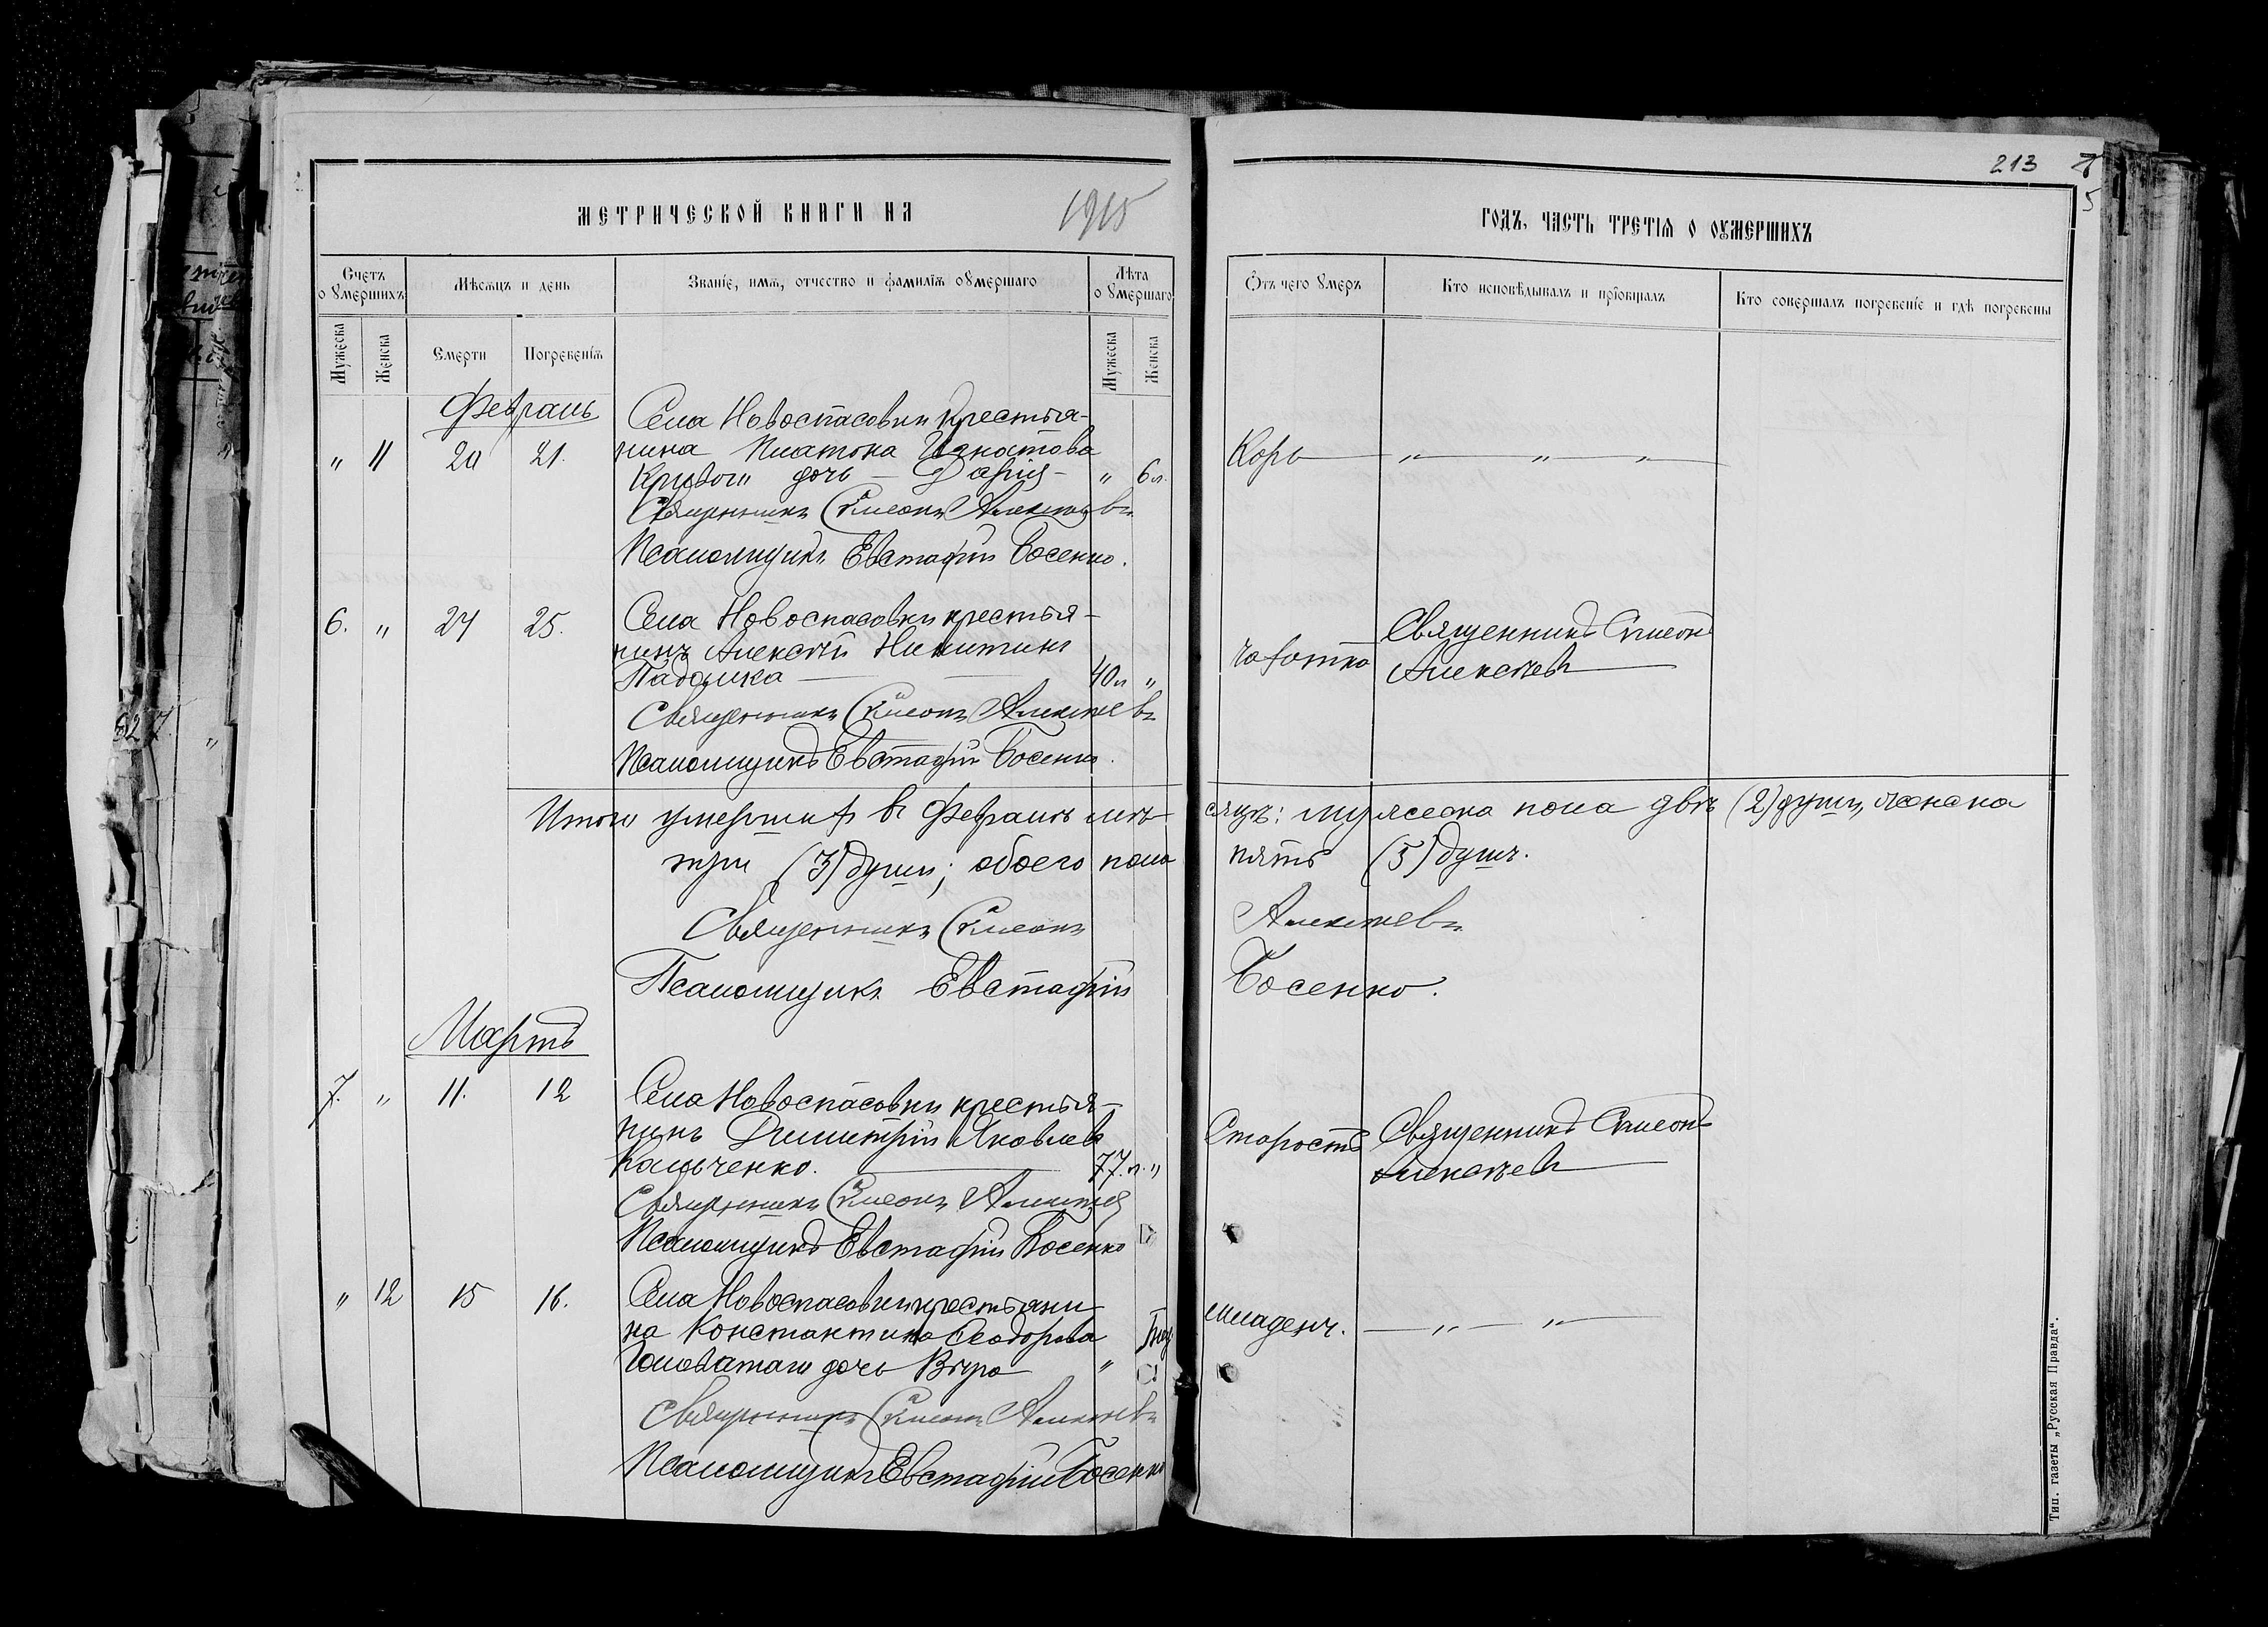 213
МЕТРИЧЕСКОЙ КНИГИ НА 1915 ГОДЪ, ЧАСТЬ ТРЕТІѦ О ОУМЕРШИХЪ
Счетъ о Умершихъ
Мѣсяцъ и день
Званіе, имѧ, отчество и фамиліѧ оУмершаго
Лѣта оУмершаго
Ѿтъ чего Умеръ
Кто исповѣдывалъ и прїобщалъ
Кто совершалъ погребенїе и гдѣ погребены
Мужеска
Женска
Смерти
Погребенїѧ
Мужеска
Женска
Февраль
Села Новоспасовки крестья-
" 11 20 21. нина Платона Игнатова
Кривого дочь - Дарія - " 6 л. Корь " " "
Священникъ Симеонъ Алексѣевъ
Псаломщикъ Евстафій Босенко.
6. " 24 25. Села Новоспасовки крестья-
нинъ Алексѣй Никитинъ
40 л " чахотка Священникъ Симеонъ Алексѣевъ
Священникъ Симеонъ Алексѣевъ
Псаломщикъ Евстафій Босенко.
Итого умершихъ въ Февралѣ мѣсяцѣ: мужеска пола двѣ (2) души, женска
три (3) души; обоего пола пять (5) душъ.
Священникъ Симеонъ Алексѣевъ
Псаломщикъ Евстафій Босенко.
Мартъ
7. " 11. 12 Села Новоспасовки крестья-
нинъ Димитрій Яковлевъ
Кольченко. 77 л. " Старость Священникъ Симеонъ Алексѣевъ
Священникъ Симеонъ Алексѣев
Псаломщикъ Евстафій Босенко
" 12 15 16. Села Новоспасовки крестьяни-
на Константина Ѳеодорова
Головатаго дочь Вѣра " младенч. " "
Священникъ Симеонъ Алексѣевъ
Псаломщикъ Евстафій Босенко
Тип. газеты „Русская Правда“.